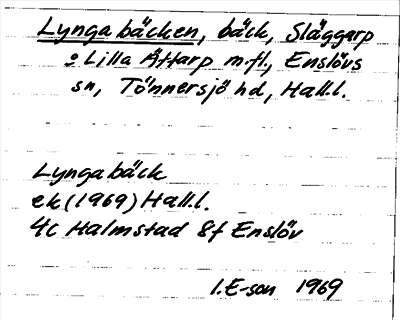 Lyngabäcken, bäck, Släggarp
o Lilla Ättarp m.fl., Enslövs
sn, Tönnersjö hd, Hall.l.
Lyngabäck
ek (1969) Hall.l.
4c Halmstad 8f Enslöv
I.E-son 1969